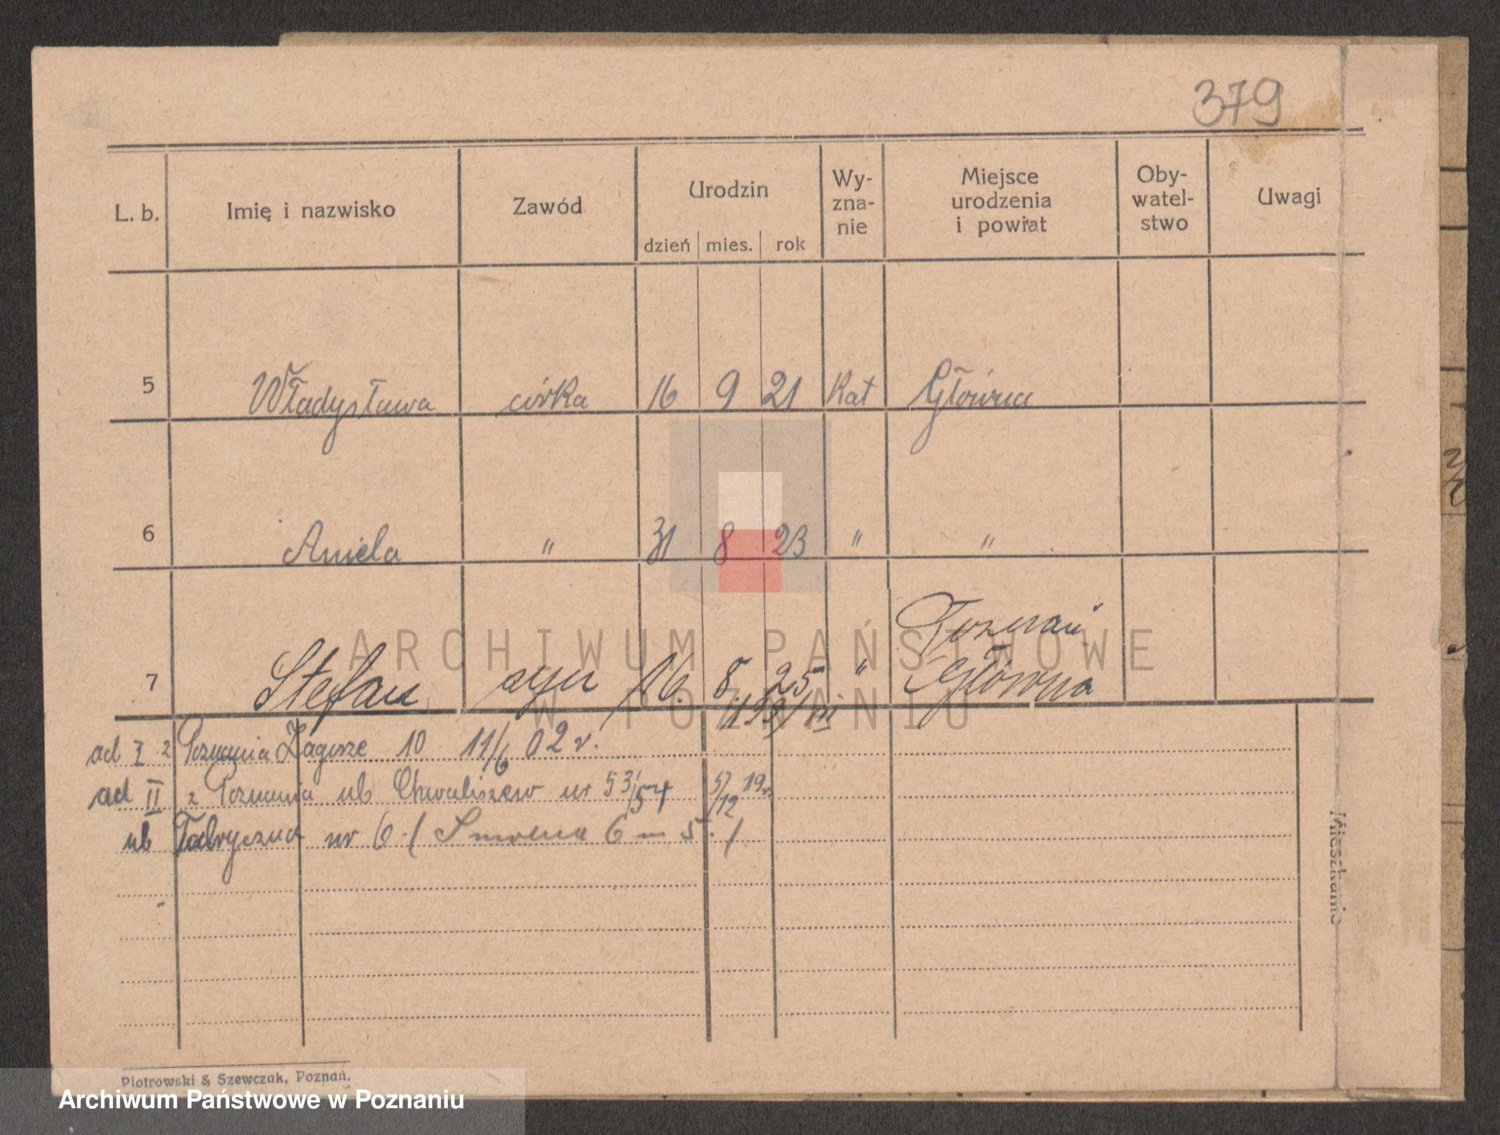 379
L. b. Imię i nazwisko Zawód Urodzin dzień mies. rok Wy- zna- nie Miejsce urodzenia i powiat Oby- watel- stwo Uwagi
5 Władysława córka 16 9 21 Kat Główna
6 Aniela " 31 8 23 " "
7 Stefan syn 16. 8. 25 " Poznań Główna
ad I z Poznania Zagórze 10 11/6 02 r.
ad II z Poznania ub Chwaliszewo nr 53/54 57/12 19
ub Fabryczna nr 6 / Smolna 6 - 5. /
Mieszkanie
Piotrowski & Szewczak, Poznań.
ARCHIWUM PAŃSTWOWE
W POZNANIU
Archiwum Państwowe w Poznaniu